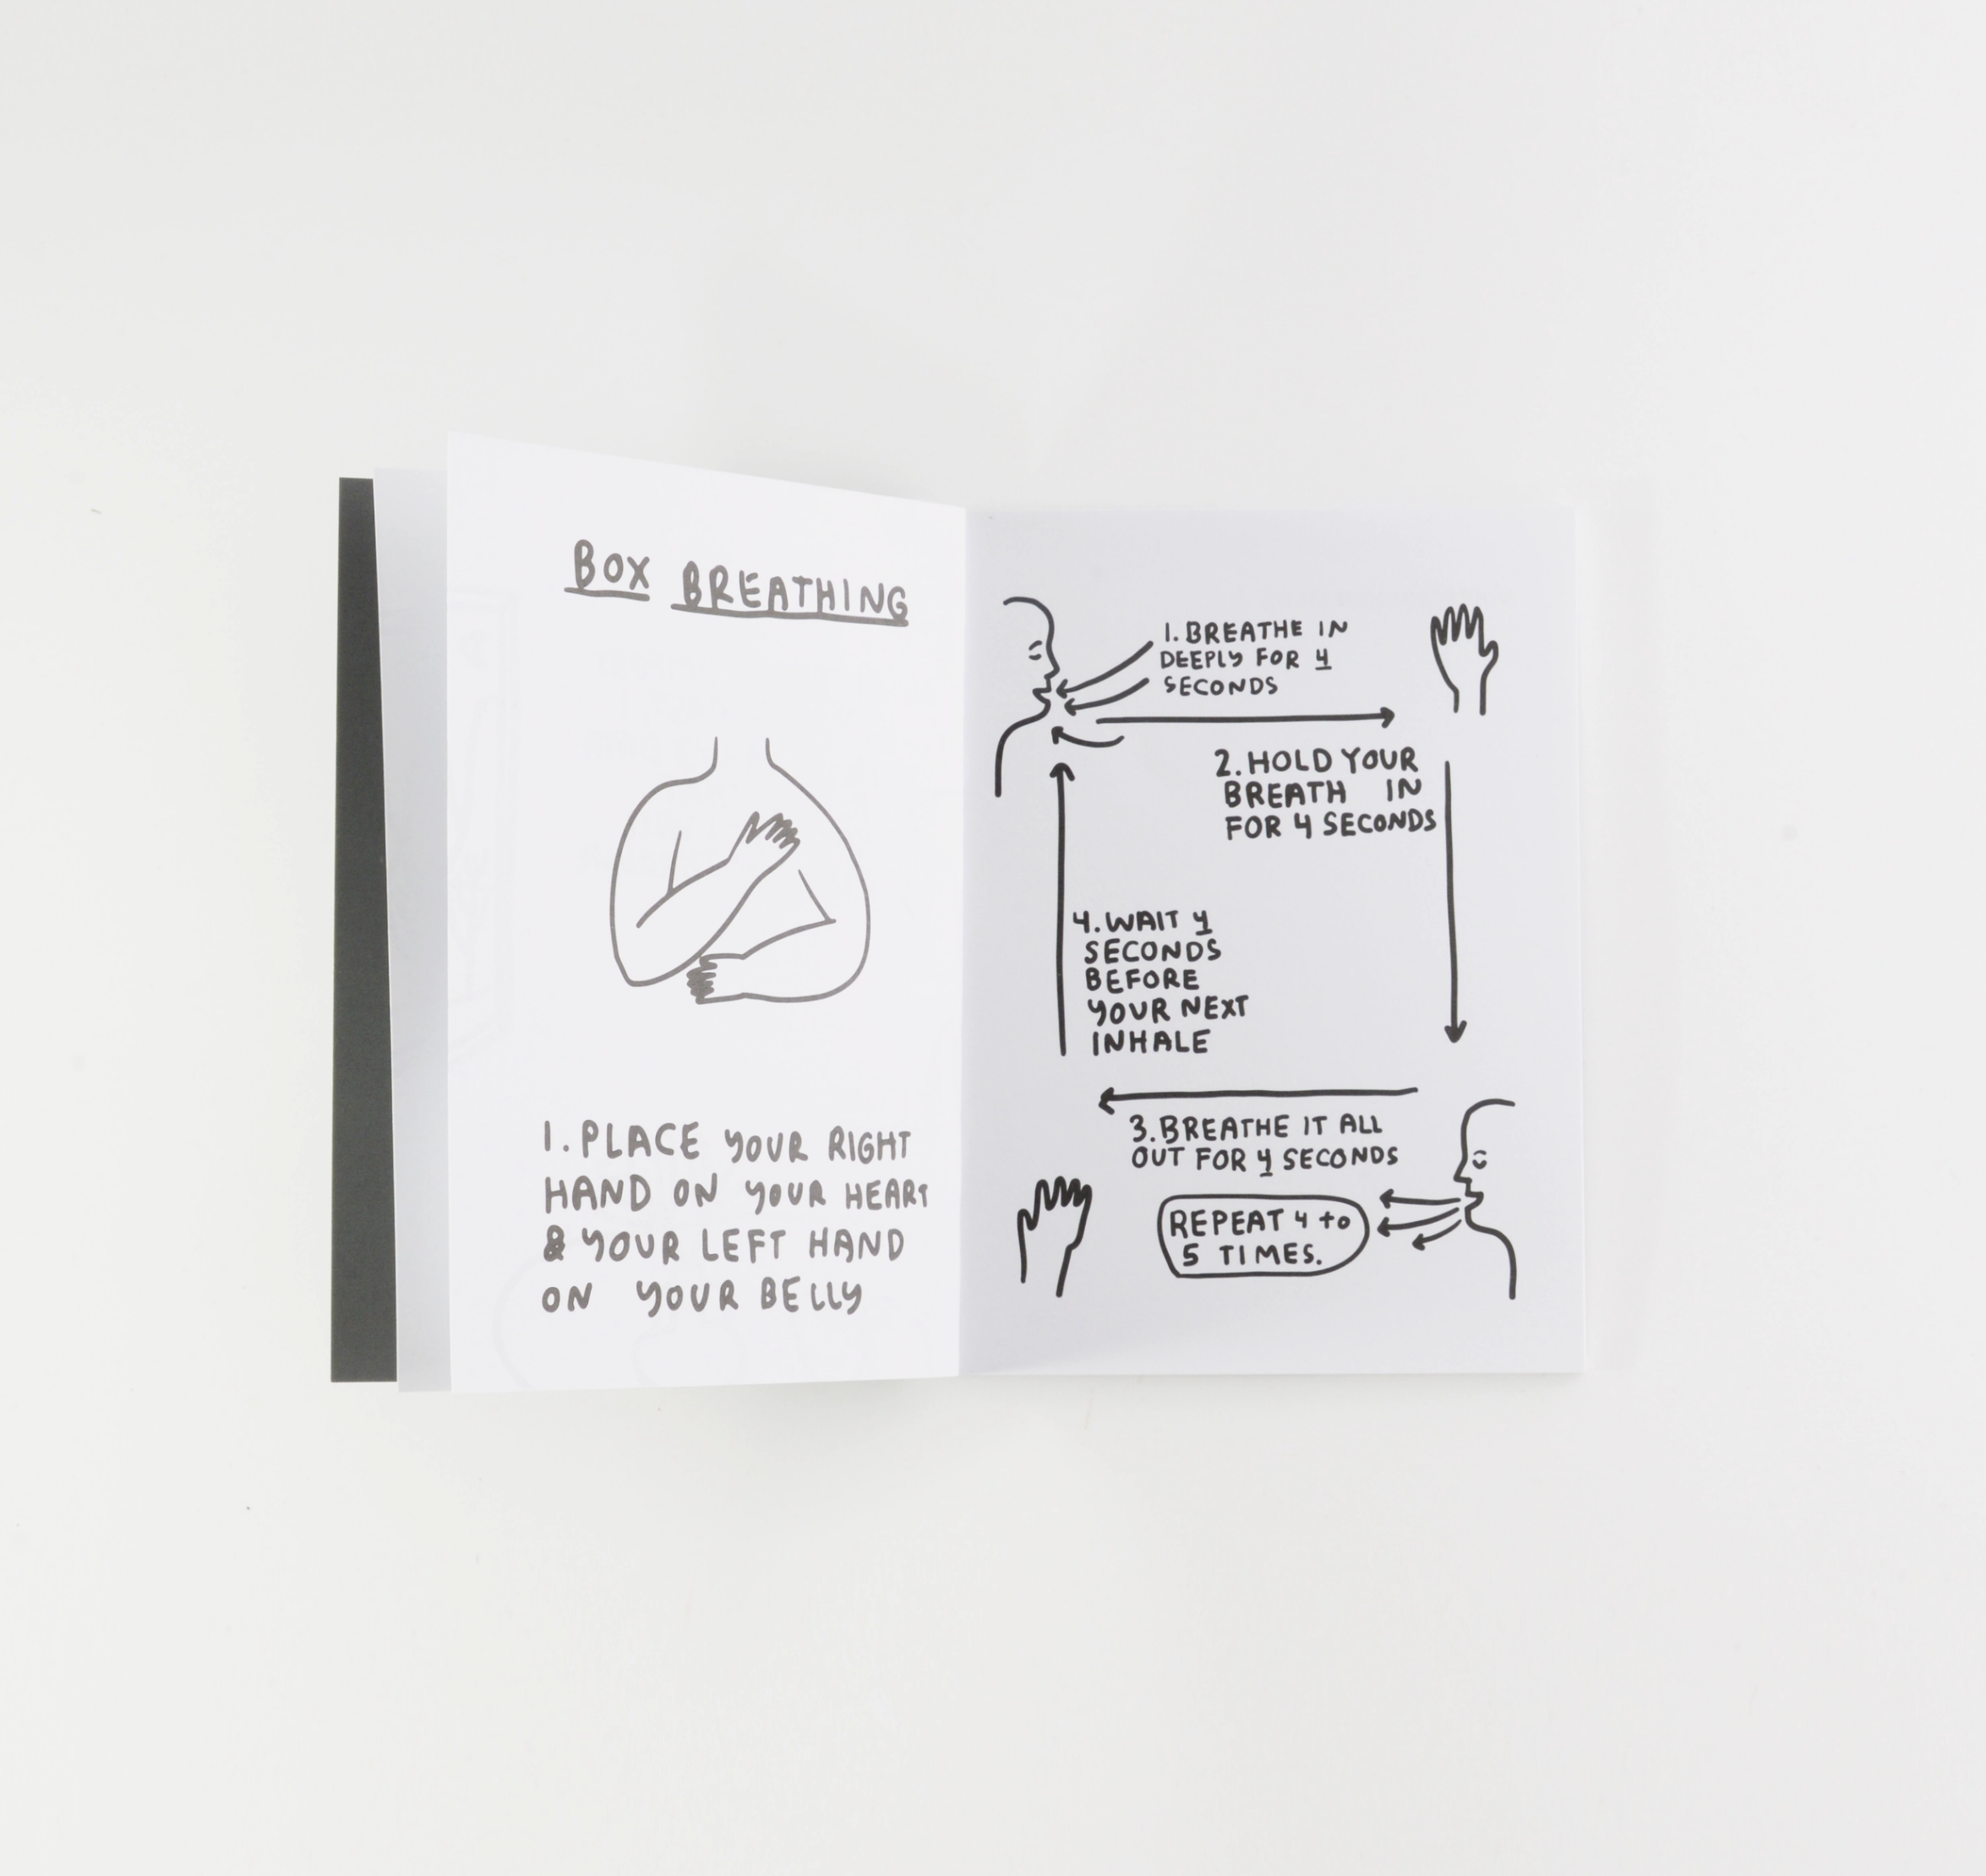 BOX BREATHING
1. PLACE YOUR RIGHT
HAND ON YOUR HEART
& YOUR LEFT HAND
ON YOUR BELLY
1. BREATHE IN
DEEPLY FOR 4
SECONDS
2. HOLD YOUR
BREATH IN
FOR 4 SECONDS
3. BREATHE IT ALL
OUT FOR 4 SECONDS
4. WAIT 4
SECONDS
BEFORE
YOUR NEXT
INHALE
REPEAT 4 to
5 TIMES.